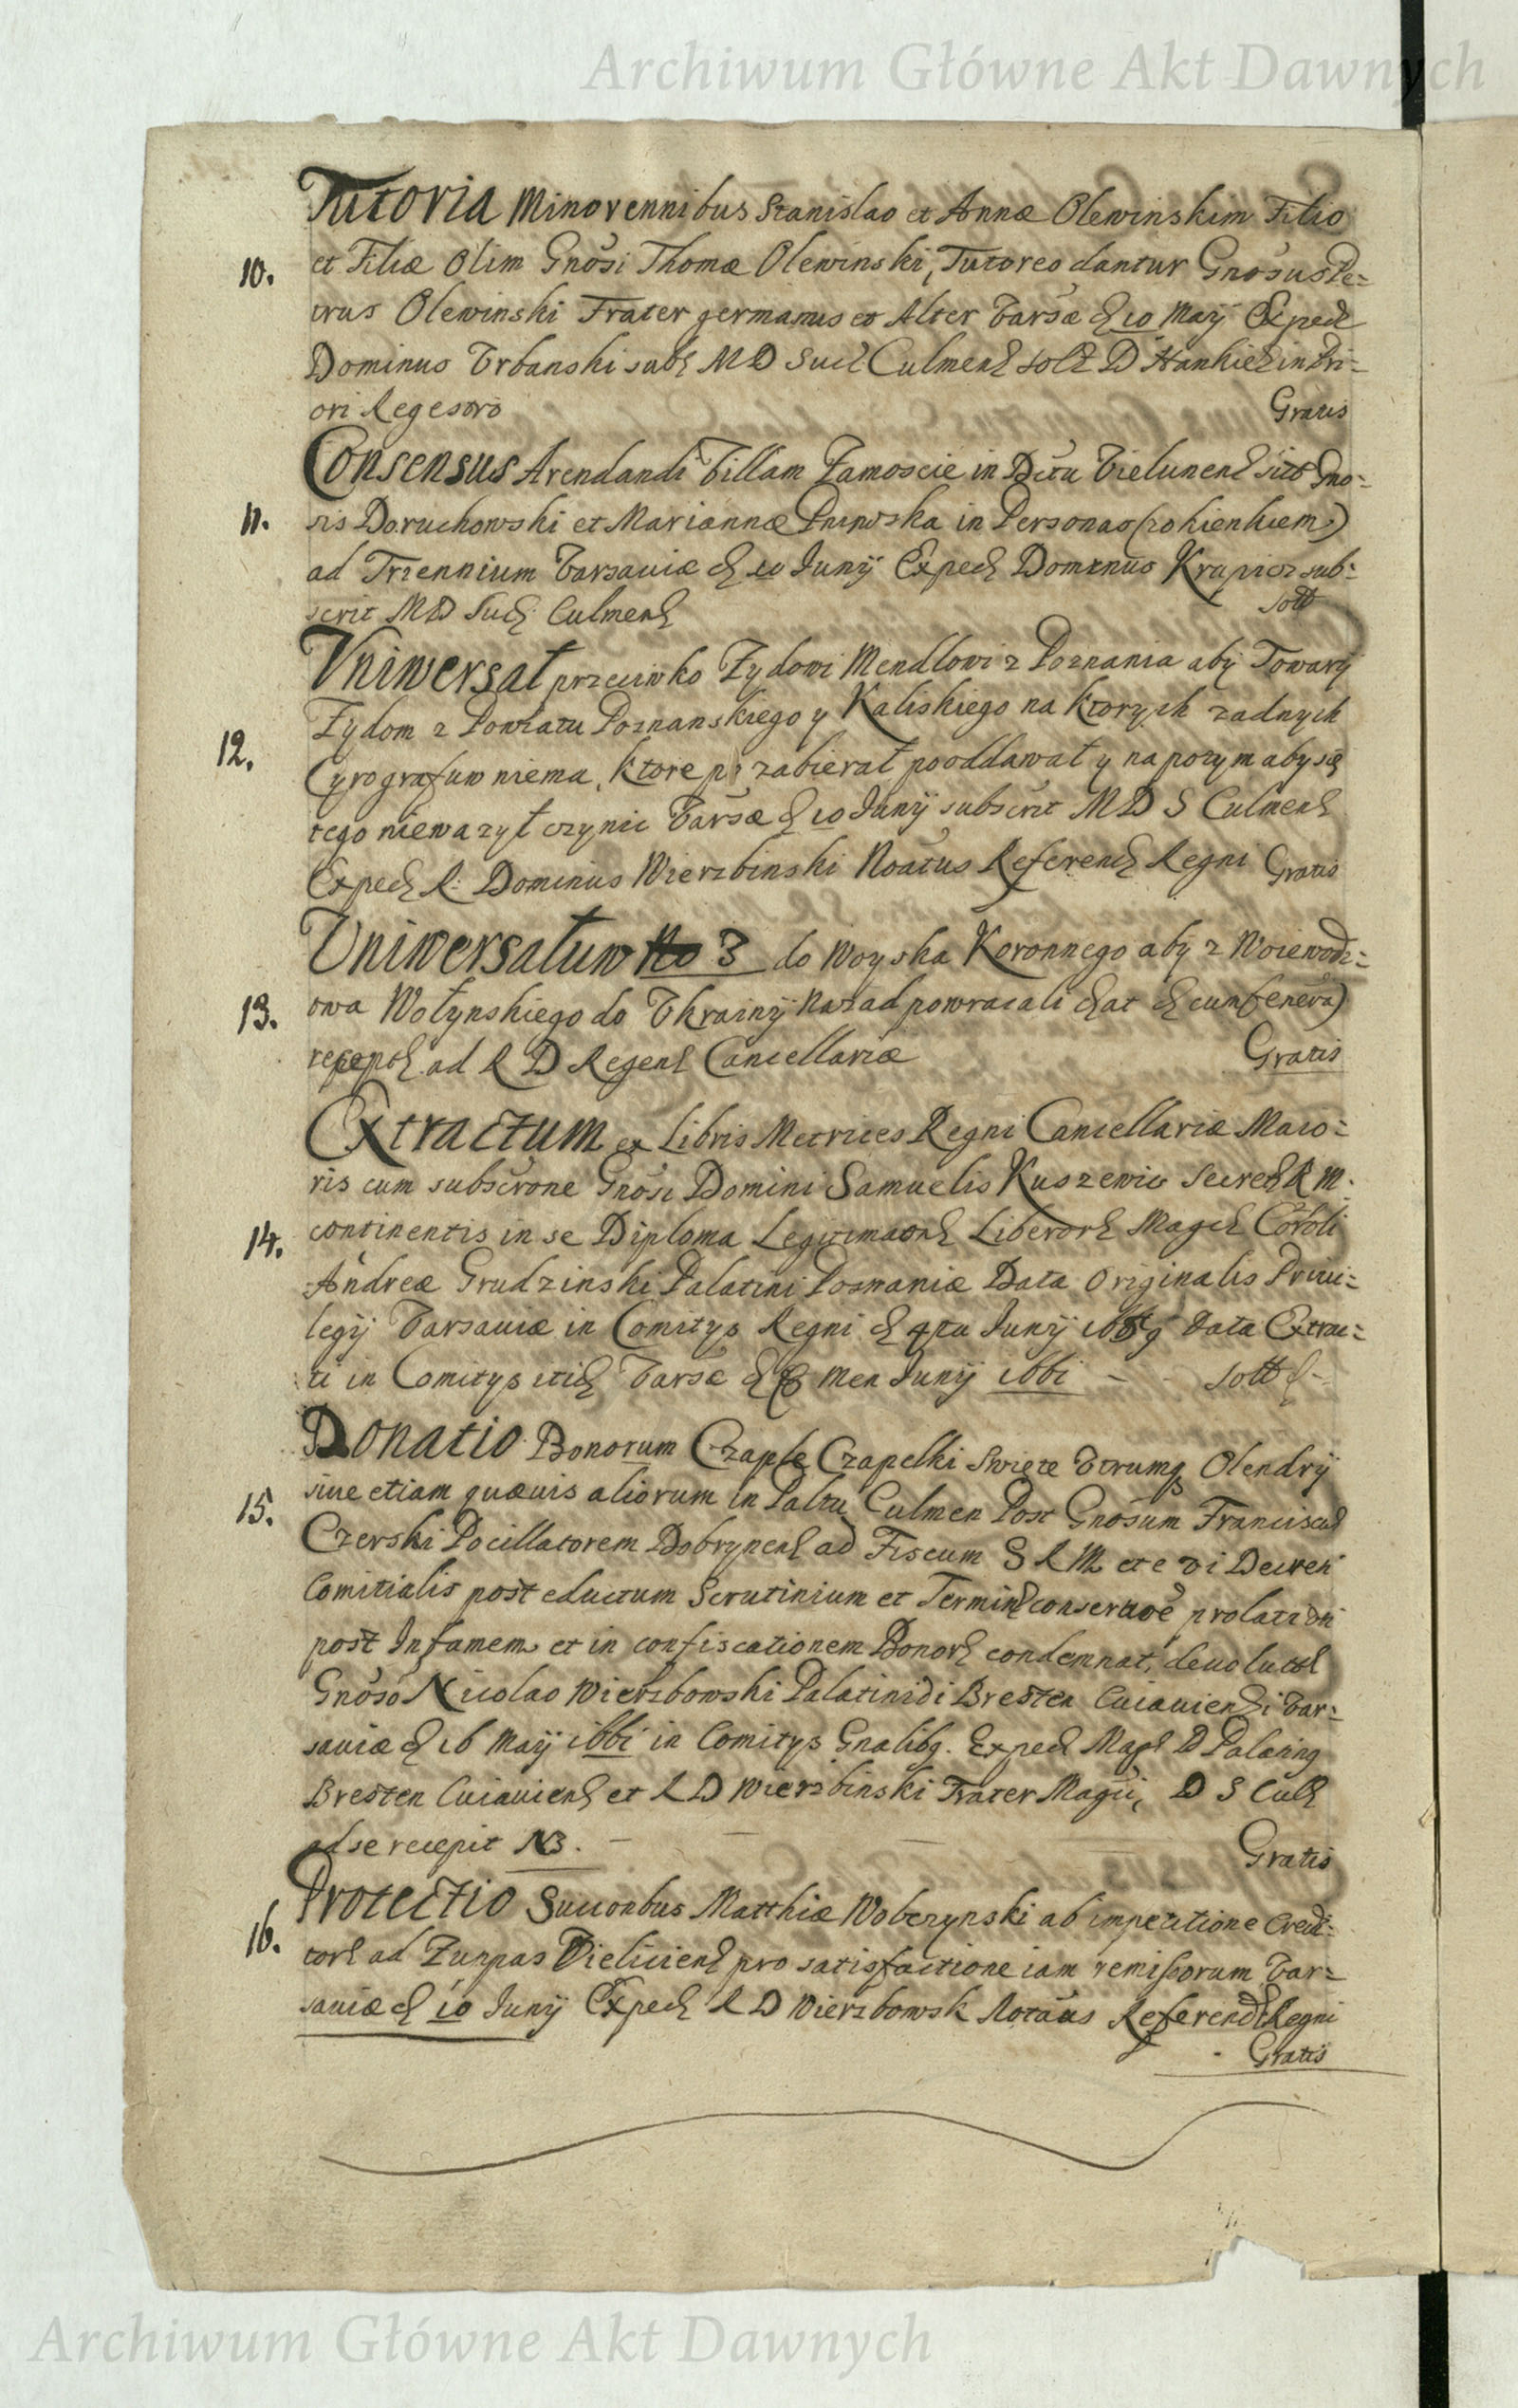 Archiwum Główne Akt Dawnych
Tutoria Minorennibus Stanislao et Annæ Olewinskim Filio
10. et Filiæ Olim Gnosi Thomæ Olewinski, Tutores dantur Gnosus Pe=
trus Olewinski Frater germanus et Alter Varsæ d 10 Maij Exped
Dominus Vrbanski subs MD Succ Culmens solt D Hankiew in Pri=
ori Regestro Gratis
Consensus Arendandi Villam Zamoscie in Dttu Vielunens sito Gno=
11. sis Doruchowski et Mariannæ in Personas
ad Triennium Varsauiæ d 10 Junij Exped Dominus Krapicz sub=
scrit MD Succ Culmens sott
Vniwersał przeciwko Zydowi Mendlowi z Poznania aby Towary
Zydom z Powiatu Poznanskiego y Kaliskiego na ktorych zadnych
12. Cyrografuw niema, ktore zabierał pooddawał y napotym aby się
tego niewazył czynic Varsæ d 10 Junij subscrit MD S Culmens
Exped R: Dominus Wierzbinski Noatus Referend Regni Gratis
Vniwersałuw No 3 do Woyska Koronnego aby z Woiewodz=
13. owa Wołynskiego do Vkrainy Nazad powracali
ad R D Regens Cancellariæ Gratis
Extractum ex Libris Metrices Regni Cancellariæ Maio=
ris cum subscrone Gnosi Domini Samuelis Kuszewic Secret R M.
14. continentis in se Diploma Legitimaons Liberors Magci Coroli
Andreæ Grudzinski Palatini Posnaniæ Data Originalis Priui=
legij Varsauiæ in Comitijs Regni d 4ta Junij Data Extrac=
ti in Comitijs itid Varsæ d Men Junij 1661 - - sott
Donatio Bonorum Czaple Czapelki Swięte Vtrumq Olendry
15. siue etiam quæuis aliorum in Palttu Culmen Post Gnosum Franciscus
Czerski Pocillatorem Dobrynens ad Fiscum S R M et e vi Decreti
Comitialis post eductum Scrutinium et Termin conseruaoe prolati
post Infamem et in confiscationem Bonors condemnat, deuoluts
Gnoso Nicolao Wierzbowski Palatinidi Bresten Cuiauiensi Var=
sauiæ d 16 Maij 1661 in Comitijs Gnalibq. Exped Mags D Palatinq
Bresten Cuiauiens et R D Wierzbinski Frater Magci, D S Culs
ad se recepit NB. - - - Gratis
Protectio Succonbus Matthiæ Wobczynski ab impetitione Credi=
16. tors ad Zuppas Vieliciens pro satisfactione iam remissorum Var=
sauiæ d 10 Junij Exped R D Wierzbowsk Notaus Referend Regni
Gratis
Archiwum Główne Akt Dawnych